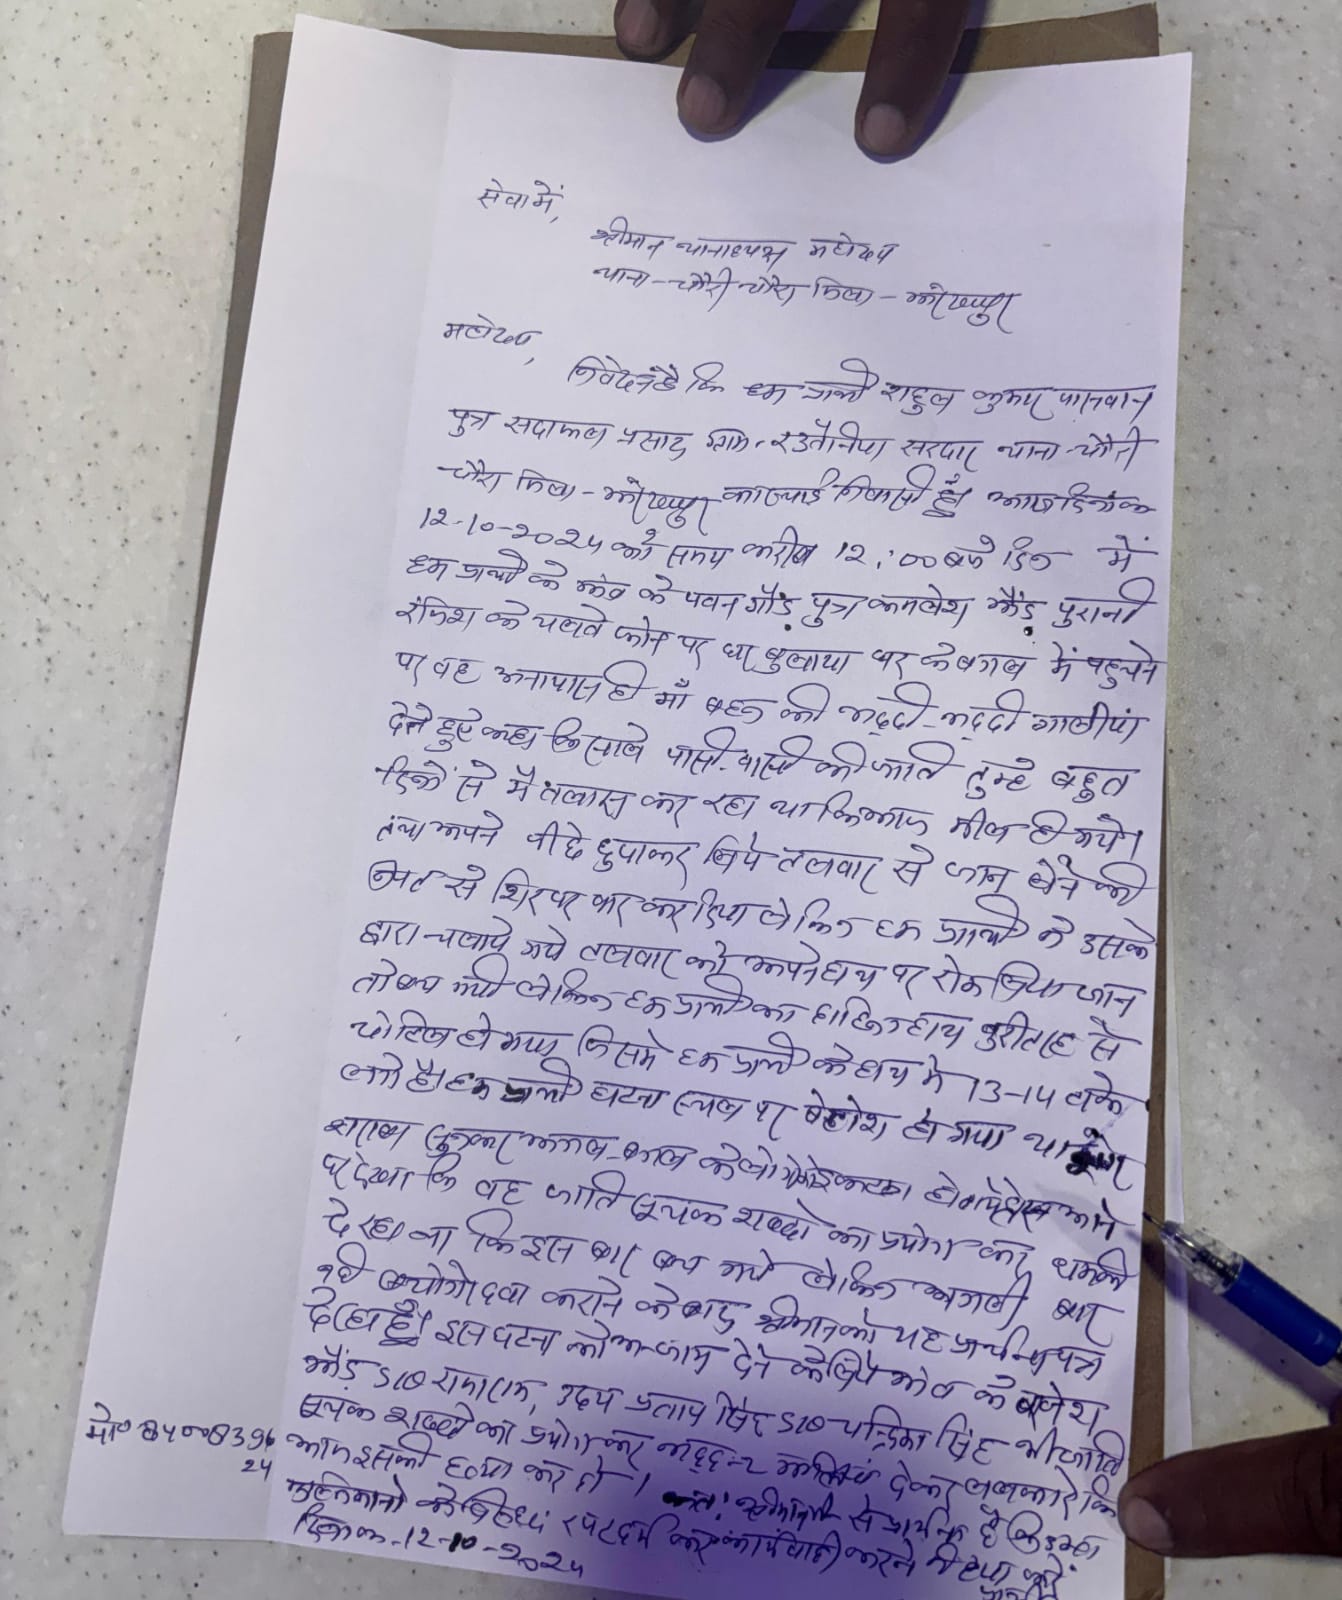 सेवा में,
श्रीमान थानाध्यक्ष महोदय
थाना - चौरी चौरा जिला - गोरखपुर
महोदय,
निवेदन है कि हम प्रार्थी राहुल कुमार पासवान
पुत्र सदाफल प्रसाद ग्राम - रउतैनिया सरदार थाना - चौरी
चौरा जिला - गोरखपुर का स्थाई निवासी हूँ। आज दिनांक
12-10-2024 को समय करीब 12:00 बजे दिन में
हम प्रार्थी को गांव के पवन गौड़ पुत्र कमलेश गौड़ पुरानी
रंजिश को चलते फोन पर घर बुलाया घर के बगल में पहुचने
पर वह अनायास ही माँ बहन की भद्दी-भद्दी गालीयां
देते हुऐ कहा कि साले पासी-वासी की जाति तुम्हे बहुत
दिनों से मैं तलास कर रहा था कि आज मील ही गये।
तथा अपने पीछे छुपाकर लिये तलवार से जान लेने की
नियत से शिर पर वार कर दिया लेकिन हम प्रार्थी ने उसके
द्वारा चलाये गये तलवार को अपने हाथ पर रोक लिया जान
तो बच गयी लेकिन हम प्रार्थी का दाहिना हाथ पुरी तरह से
चोटिल हो गया जिसमे हम प्रार्थी के हाथ मे 13-14 टाके
लगे है। हम प्रार्थी घटना स्थल पर बेहोश हो गया था
सुनकर अगल-बगल के लोग इकट्ठा हो गये होश आने
पर देखा कि वह जाति सूचक शब्दो का प्रयोग कर धमकी
दे रहा था कि इस बार बच गये लेकिन अगली बार
नही बचोगे। दवा कराने के बाद श्रीमान को यह प्रार्थना पत्र
दे रहा हूँ। इस घटना को अन्जाम देने के लिये गांव के
गौड़ S/O रामाराम, उदय प्रताप सिंह S/O चन्द्रिका सिंह भी जाति
सूचक शब्दो का प्रयोग कर गालियां देकर ललकारे कि
आज इसकी हत्या कर दो। अत: श्रीमान जी से प्रार्थना है कि
के विरुद्ध रपट दर्ज कर कार्यवाही करने की कृपा करें
मो० 8400839624
दिनांक - 12-10-2024